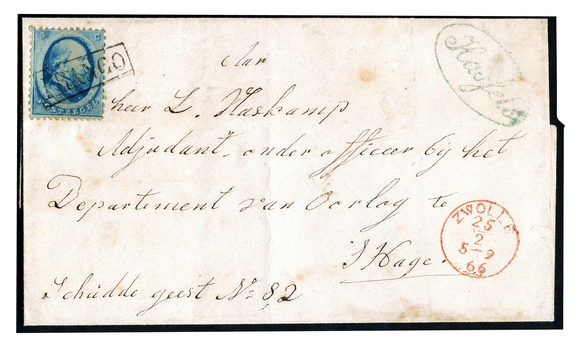 5 5
FRANCO
POSTZEGEL
Aan
heer L. Haskamp
Adjudant-onder officier bij het
Departement van Oorlog te
S'Hage.
Schedde geest No 82
ZWOLLE
25
2
5-9
66